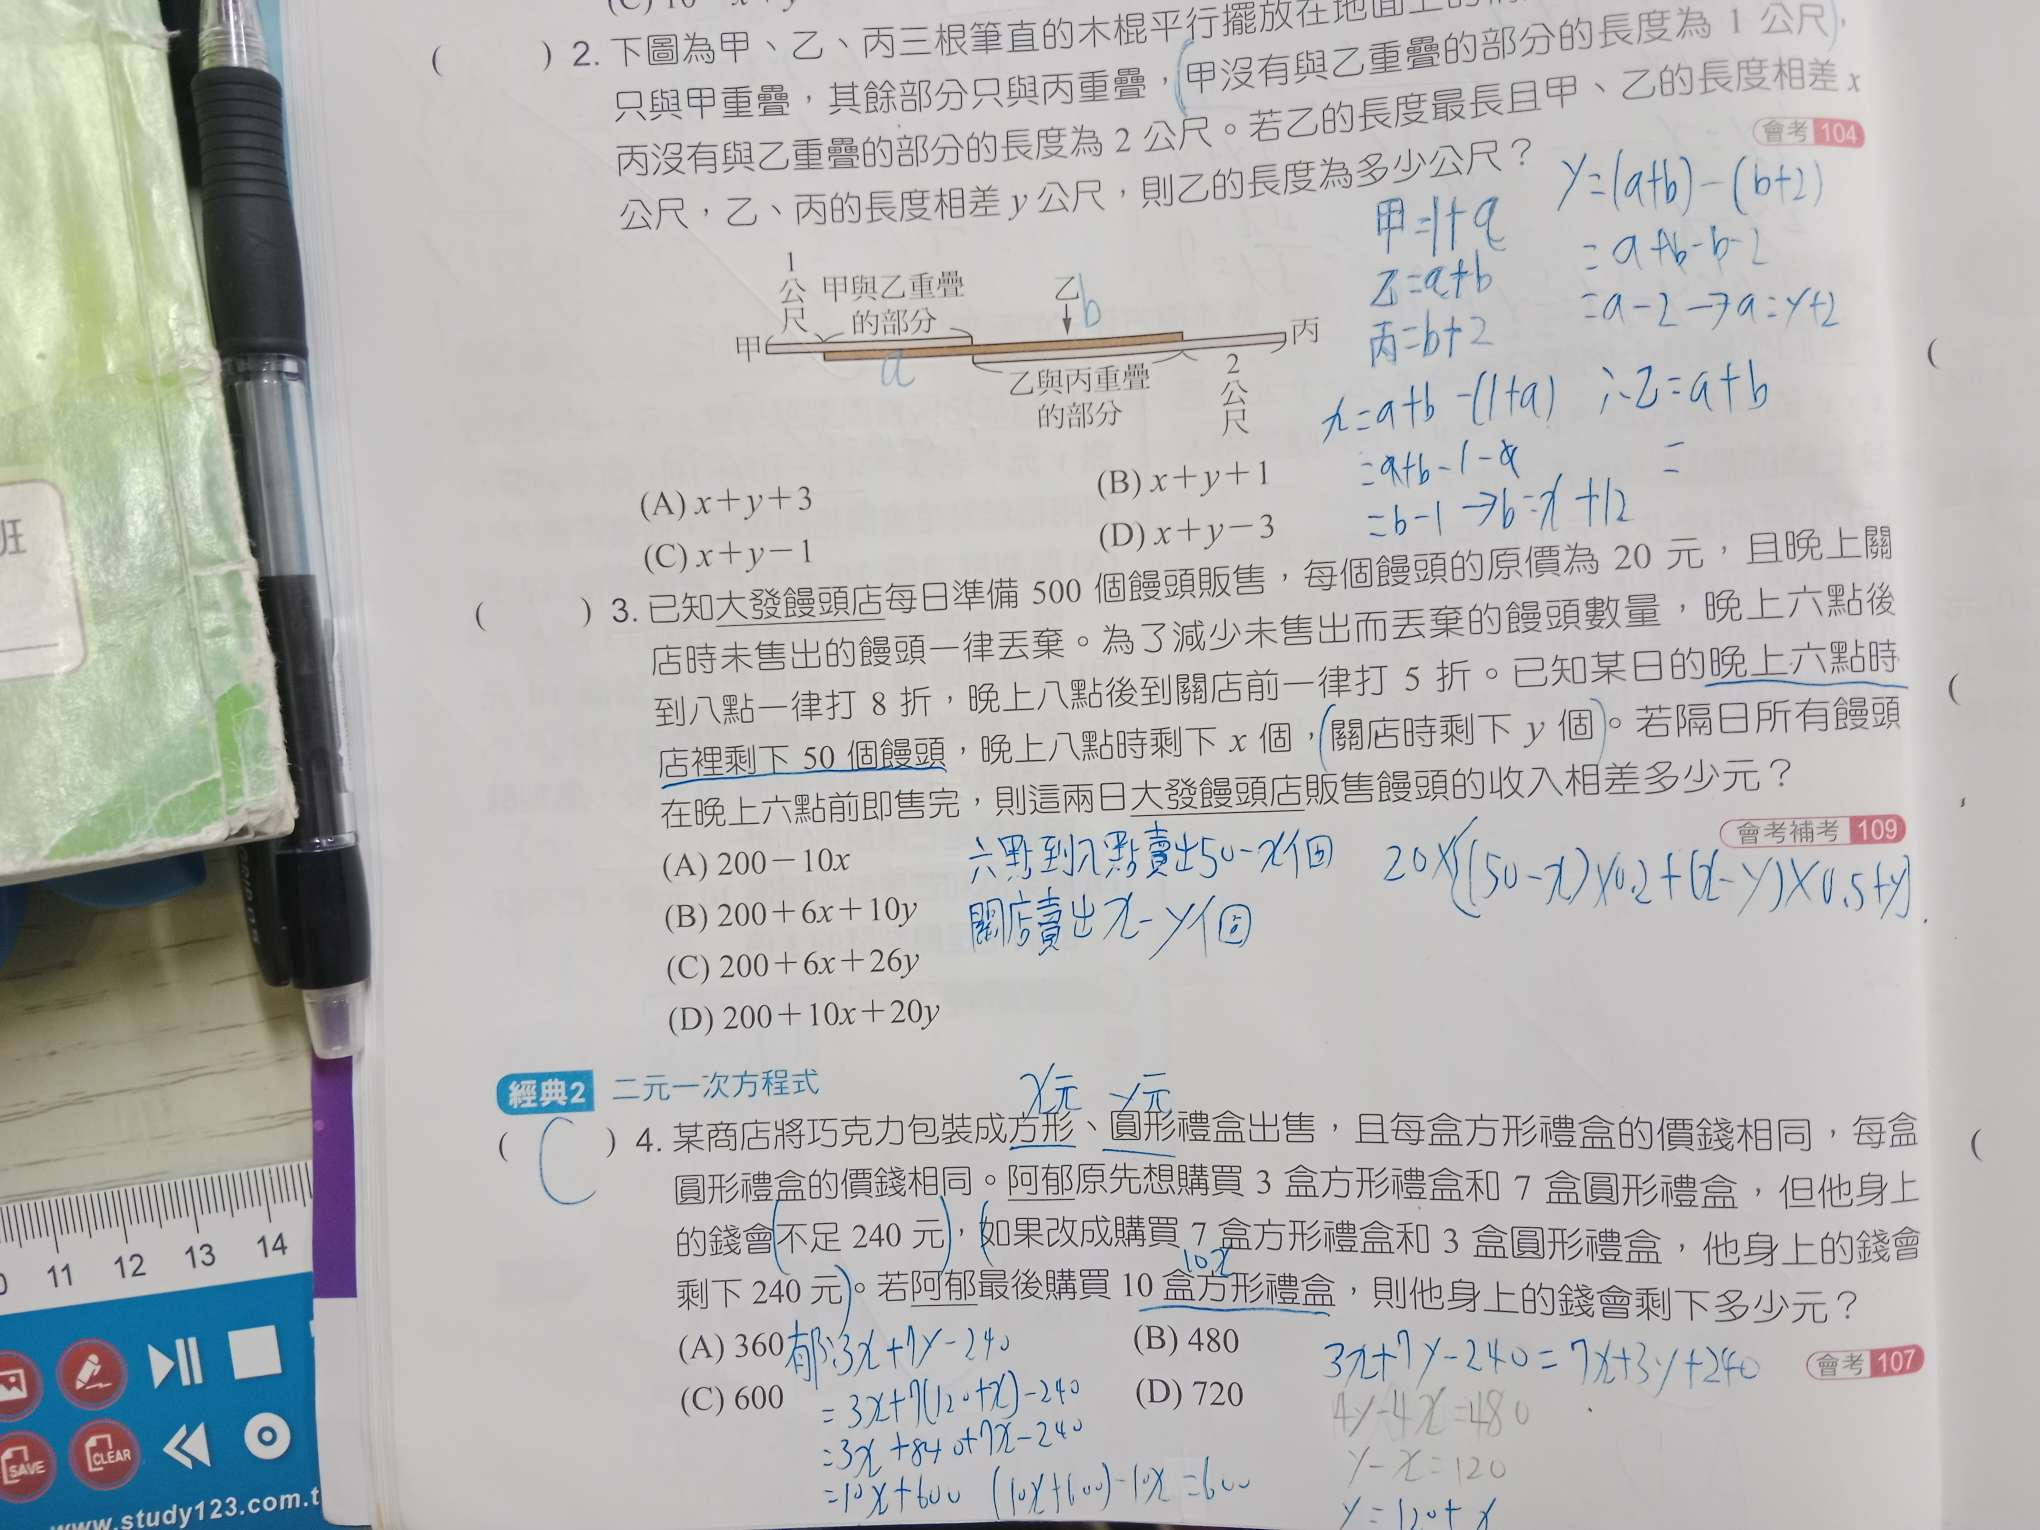 2. 下圖為甲、乙、丙三根筆直的木棍平行擺放在地面上的
只與甲重疊，其餘部分只與丙重疊，甲沒有與乙重疊的部分的長度為 1 公尺，
丙沒有與乙重疊的部分的長度為 2 公尺。若乙的長度最長且甲、乙的長度相差 x
公尺，乙、丙的長度相差 y 公尺，則乙的長度為多少公尺？
會考 104
甲=1+a
乙=a+b
丙=b+2
x=a+b-(1+a)
=a+b-1-a
=b-1→b=x+1
y=(a+b)-(b+2)
=a+b-b-2
=a-2→a=y+2
∴乙=a+b
=
1公尺
甲與乙重疊
的部分
乙
b
甲
a
丙
乙與丙重疊
的部分
2公尺
(A) x+y+3
(B) x+y+1
(C) x+y-1
(D) x+y-3
( ) 3. 已知大發饅頭店每日準備 500 個饅頭販售，每個饅頭的原價為 20 元，且晚上關
店時未售出的饅頭一律丟棄。為了減少未售出而丟棄的饅頭數量，晚上六點後
到八點一律打 8 折，晚上八點後到關店前一律打 5 折。已知某日的晚上六點時
店裡剩下 50 個饅頭，晚上八點時剩下 x 個，關店時剩下 y 個。若隔日所有饅頭
在晚上六點前即售完，則這兩日大發饅頭店販售饅頭的收入相差多少元？
會考補考 109
(A) 200-10x
(B) 200+6x+10y
(C) 200+6x+26y
(D) 200+10x+20y
六點到八點賣出50-x個
關店賣出x-y個
20×[(50-x)×0.2+(x-y)×0.5+y]
經典2 二元一次方程式
x元 y元
( C ) 4. 某商店將巧克力包裝成方形、圓形禮盒出售，且每盒方形禮盒的價錢相同，每盒
圓形禮盒的價錢相同。阿郁原先想購買 3 盒方形禮盒和 7 盒圓形禮盒，但他身上
的錢會不足 240 元，如果改成購買 7 盒方形禮盒和 3 盒圓形禮盒，他身上的錢會
10x
剩下 240 元。若阿郁最後購買 10 盒方形禮盒，則他身上的錢會剩下多少元？
(A) 360
(B) 480
(C) 600
(D) 720
會考 107
郁:3x+7y-240
=3x+7(120+x)-240
=3x+840+7x-240
=10x+600 (10x+600)-10x=600
3x+7y-240=7x+3y+240
4y-4x=480
y-x=120
y=120+x
班
11 12 13 14
SAVE
CLEAR
www.study123.com.t